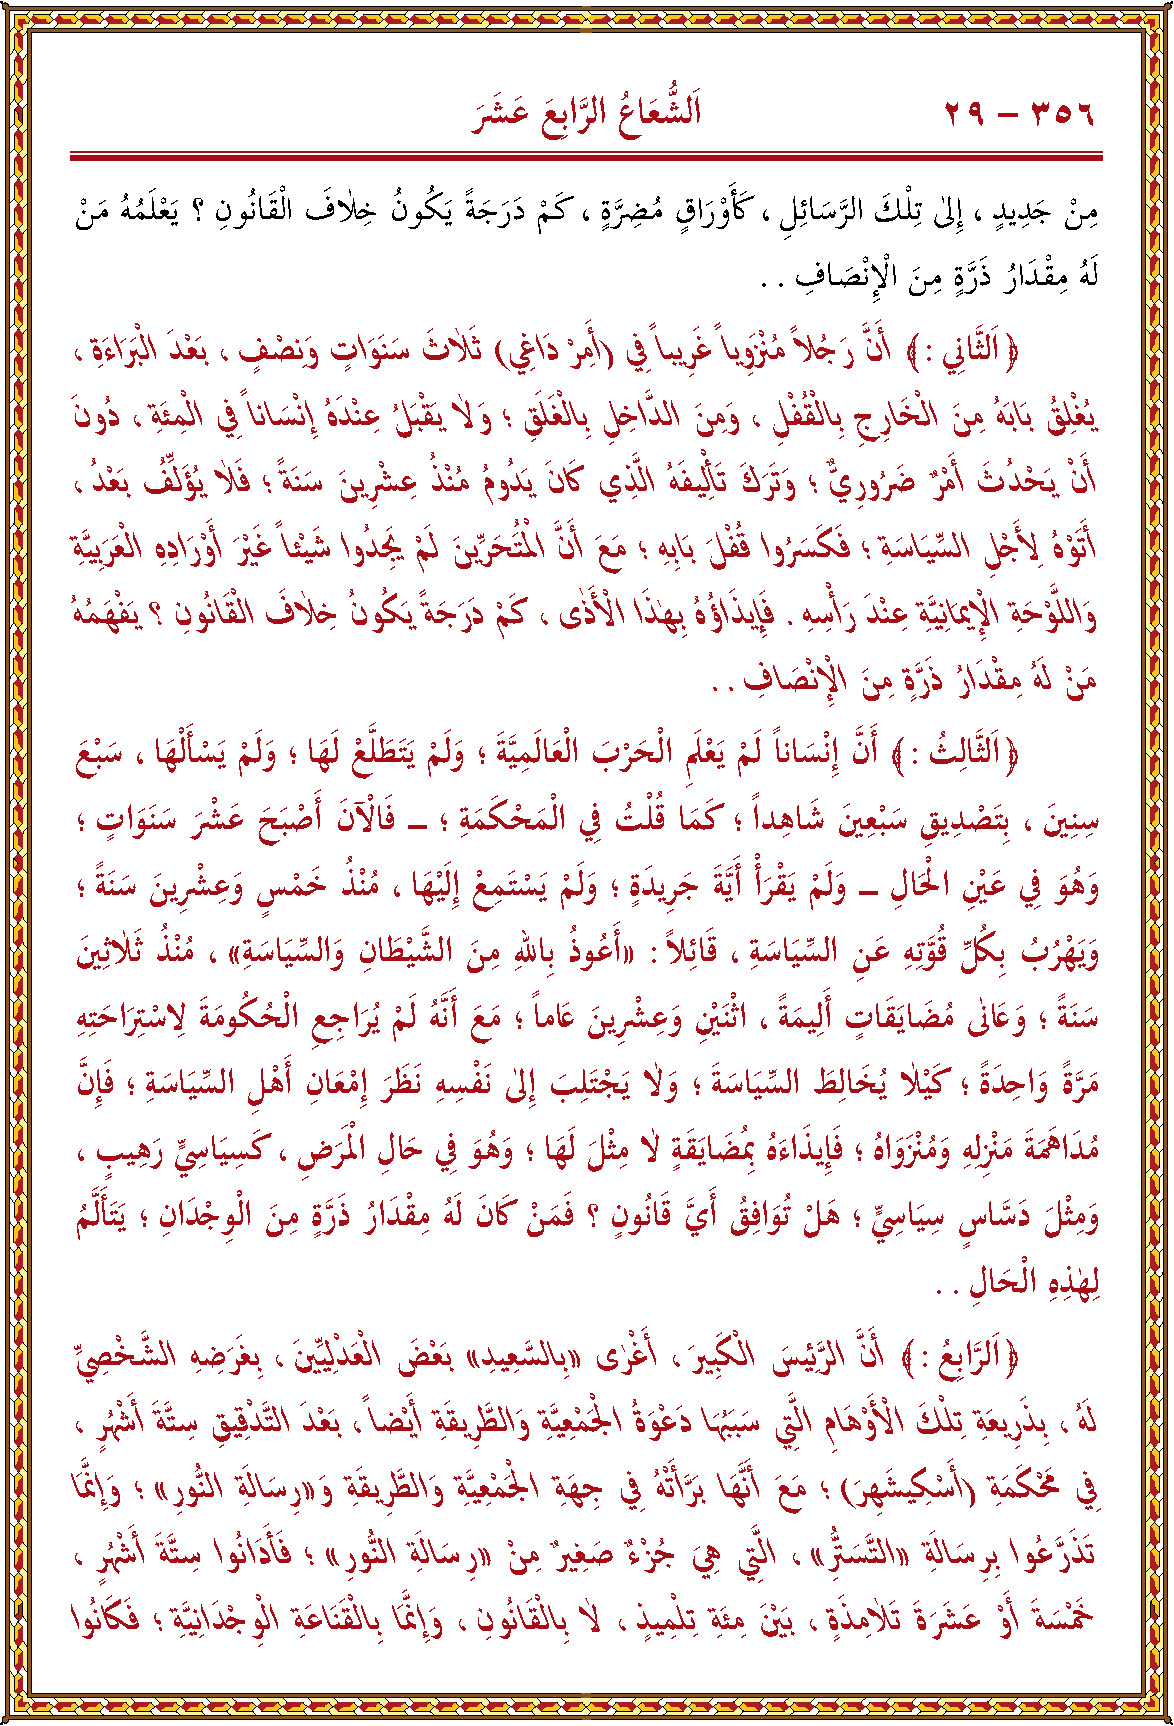 ٣٥٦ – ٢٩ اَلشُّعَاعُ الرَّابِعَ عَشَرَ
مِنْ جَدِيدٍ ، إِلىٰ تِلْكَ الرَّسَائِلِ ، كَأَوْرَاقٍ مُضِرَّةٍ ، كَمْ دَرَجَةً يَكُونُ خِلاٰفَ الْقَانُونِ ؟ يَعْلَمُهُ مَنْ
لَهُ مِقْدَارُ ذَرَّةٍ مِنَ الْإِنْصَافِ . .
﴿ اَلثَّانِي : ﴾ أَنَّ رَجُلاً مُنْزَوِياً غَرِيباً فِي (أَمِرْ دَاغِي) ثَلاٰثَ سَنَوَاتٍ وَنِصْفٍ ، بَعْدَ الْبَرَاءَةِ ،
يُغْلِقُ بَابَهُ مِنَ الْخَارِجِ بِالْقُفْلِ ، وَمِنَ الدَّاخِلِ بِالْغَلَقِ ؛ وَلاٰ يَقْبَلُ عِنْدَهُ إِنْسَاناً فِي الْمِئَةِ ، دُونَ
أَنْ يَحْدُثَ أَمْرٌ ضَرُورِيٌّ ؛ وَتَرَكَ تَأْلِيفَهُ الَّذِي كَانَ يَدُومُ مُنْذُ عِشْرِينَ سَنَةً ؛ فَلاٰ يُؤَلِّفُ بَعْدُ ،
أَتَوْهُ لِأَجْلِ السِّيَاسَةِ ؛ فَكَسَرُوا قُفْلَ بَابِهِ ؛ مَعَ أَنَّ الْمُتَحَرِّينَ لَمْ يَجِدُوا شَيْئاً غَيْرَ أَوْرَادِهِ الْعَرَبِيَّةِ
وَاللَّوْحَةِ الْإِيمَانِيَّةِ عِنْدَ رَأْسِهِ . فَإِيذَاؤُهُ بِهٰذَا الْأَذٰى ، كَمْ دَرَجَةً يَكُونُ خِلاٰفَ الْقَانُونِ ؟ يَفْهَمُهُ
مَنْ لَهُ مِقْدَارُ ذَرَّةٍ مِنَ الْإِنْصَافِ . .
﴿ اَلثَّالِثُ : ﴾ أَنَّ إِنْسَاناً لَمْ يَعْلَمِ الْحَرْبَ الْعَالَمِيَّةَ ؛ وَلَمْ يَتَطَلَّعْ لَهَا ؛ وَلَمْ يَسْأَلْهَا ، سَبْعَ
سِنِينَ ، بِتَصْدِيقِ سَبْعِينَ شَاهِداً ؛ كَمَا قُلْتُ فِي الْمَحْكَمَةِ ؛ – فَالْآنَ أَصْبَحَ عَشْرَ سَنَوَاتٍ ؛
وَهُوَ فِي عَيْنِ الْحَالِ – وَلَمْ يَقْرَأْ أَيَّةَ جَرِيدَةٍ ؛ وَلَمْ يَسْتَمِعْ إِلَيْهَا ، مُنْذُ خَمْسٍ وَعِشْرِينَ سَنَةً ؛
وَيَهْرُبُ بِكُلِّ قُوَّتِهِ عَنِ السِّيَاسَةِ ، قَائِلاً : «أَعُوذُ بِاللهِ مِنَ الشَّيْطَانِ وَالسِّيَاسَةِ» ، مُنْذُ ثَلاٰثِينَ
سَنَةً ؛ وَعَانٰى مُضَايَقَاتٍ أَلِيمَةً ، اثْنَيْنِ وَعِشْرِينَ عَاماً ؛ مَعَ أَنَّهُ لَمْ يُرَاجِعِ الْحُكُومَةَ لِاسْتِرَاحَتِهِ
مَرَّةً وَاحِدَةً ؛ كَيْلاٰ يُخَالِطَ السِّيَاسَةَ ؛ وَلاٰ يَجْتَلِبَ إِلىٰ نَفْسِهِ نَظَرَ إِمْعَانِ أَهْلِ السِّيَاسَةِ ؛ فَإِنَّ
مُدَاهَمَةَ مَنْزِلِهِ وَمُنْزَوَاهُ ؛ فَإِيذَاءَهُ بِمُضَايَقَةٍ لاٰ مِثْلَ لَهَا ؛ وَهُوَ فِي حَالِ الْمَرَضِ ، كَسِيَاسِيٍّ رَهِيبٍ ،
وَمِثْلَ دَسَّاسٍ سِيَاسِيٍّ ؛ هَلْ تُوَافِقُ أَيَّ قَانُونٍ ؟ فَمَنْ كَانَ لَهُ مِقْدَارُ ذَرَّةٍ مِنَ الْوِجْدَانِ ؛ يَتَأَلَّمُ
لِهٰذِهِ الْحَالِ . .
﴿ اَلرَّابِعُ : ﴾ أَنَّ الرَّئِيسَ الْكَبِيرَ ، أَغْرٰى «بِالسَّعِيدِ» بَعْضَ الْعَدْلِيِّينَ ، بِغَرَضِهِ الشَّخْصِيِّ
لَهُ ، بِذَرِيعَةِ تِلْكَ الْأَوْهَامِ الَّتِي سَبَبُهَا دَعْوَةُ الْجَمْعِيَّةِ وَالطَّرِيقَةِ أَيْضاً ، بَعْدَ التَّدْقِيقِ سِتَّةَ أَشْهُرٍ ،
فِي مَحْكَمَةِ (أَسْكِيشَهِرَ) ؛ مَعَ أَنَّهَا بَرَّأَتْهُ فِي جِهَةِ الْجَمْعِيَّةِ وَالطَّرِيقَةِ وَ«رِسَالَةِ النُّورِ» ؛ وَإِنَّمَا
تَذَرَّعُوا بِرِسَالَةِ «التَّسَتُّرِ» ، الَّتِي هِيَ جُزْءٌ صَغِيرٌ مِنْ «رِسَالَةِ النُّورِ» ؛ فَأَدَانُوا سِتَّةَ أَشْهُرٍ ،
خَمْسَةَ أَوْ عَشَرَةَ تَلاٰمِذَةٍ ، بَيْنَ مِئَةِ تِلْمِيذٍ ، لاٰ بِالْقَانُونِ ، وَإِنَّمَا بِالْقَنَاعَةِ الْوِجْدَانِيَّةِ ؛ فَكَانُوا